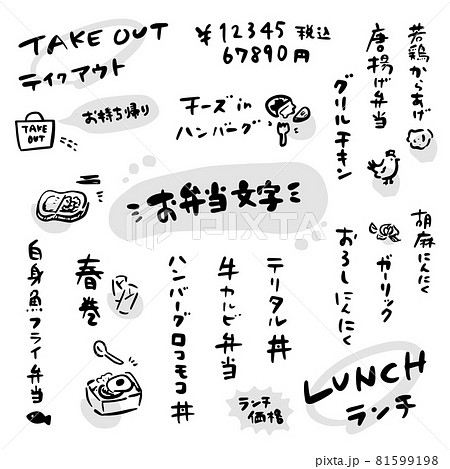 TAKE OUT
テイクアウト
¥12345 税込
67890円
TAKE OUT
お持ち帰り
チーズin
ハンバーグ
若鶏からあげ
唐揚げ弁当
グリルチキン
お弁当文字
PIXTA
胡麻にんにく
ガーリック
おろしにんにく
テリタル丼
牛カルビ弁当
ハンバーグロコモコ丼
春巻
白身魚フライ弁当
ランチ
価格
LUNCH
ランチ
pixta.jp - 81599198